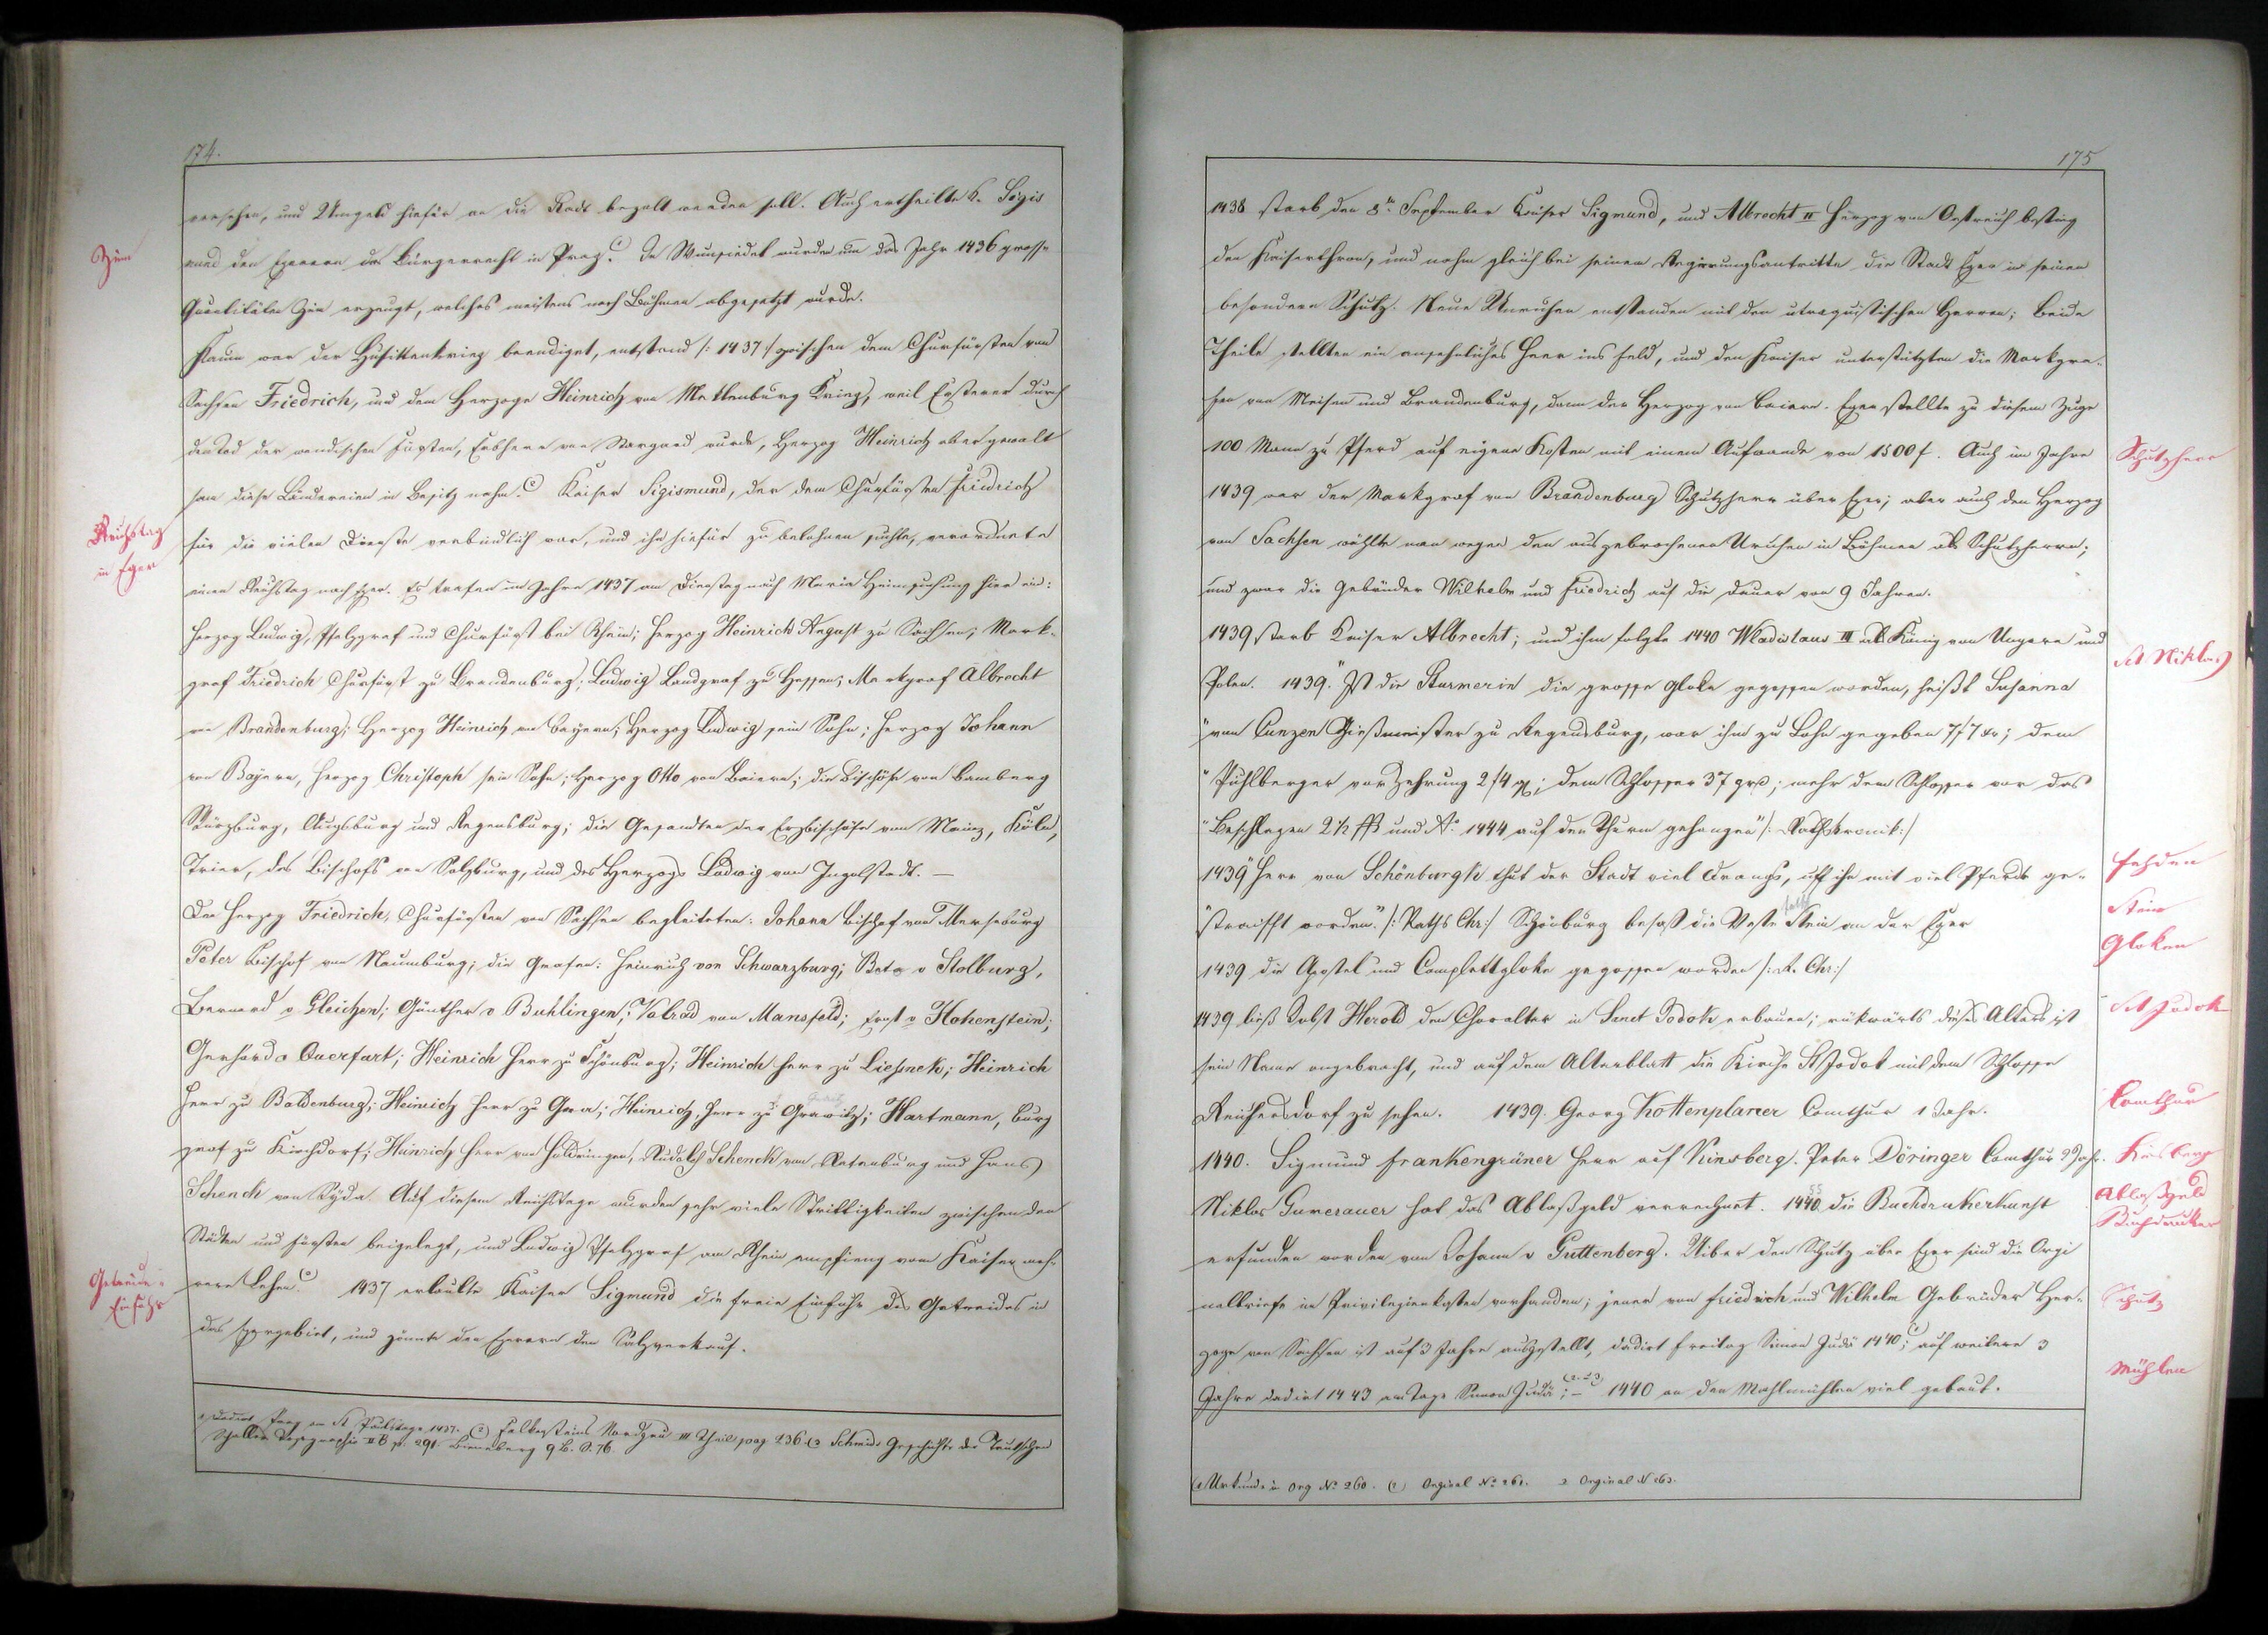 174.
versehen, und Ungeld hiefür an die Stadt bezalt werden soll. Auch ertheilte K. Sigis
Zinn
mund den Egerern das Bürgerrecht in Prag. (1 In Wunsiedel wurden um das Jahr 1436 grosse
Quantitäten Zin erzeugt, welches meistens nach Böhmen abgesetzt wurde.
Kaum war der Husittenkrieg beendiget, entstand /: 1437 :/ zwischen dem Churfürsten von
Sachsen Friedrich, und dem Herzoge Heinrich von Meklenburg Krieg, weil Ersterer durch
den Tod der wendischen Fürsten, Erbherr von Stargard wurde, Herzog Heinrich aber gewalt
sam diese Ländereien in Besitz nahm. (2 Kaiser Sigismund, der dem Churfürsten Friedrich
Reichstag
in Eger
für die vielen Dienste verbindlich war, und ihn hiefür zu belohnen suchte, verordnete
einen Reichstag nach Eger. Es trafen im Jahre 1437 am Dienstag nach Maria Heimsuchung hier ein:
Herzog Ludwig, Pfalzgraf und Churfürst bei Rhein; Herzog Heinrich August zu Sachsen; Mark-
graf Friedrich Churfürst zu Brandenburg; Ludwig Landgraf zu Hessen; Markgraf Albrecht
von Brandenburg; Herzog Heinrich von Bayern; Herzog Ludwig sein Sohn; Herzog Johann
von Bayern, Herzog Christoph sein Sohn; Herzog Otto von Baiern; die Bischöfe von Bamberg
Würzburg, Augsburg und Regensburg; die Gesandten der Erzbischöfe von Mainz, Köln,
Trier, des Bischofs von Salzburg, und des Herzogs Ludwig von Ingolstadt. —
Den Herzog Friedrich, Churfürsten von Sachsen begleiteten: Johann Bischof von Merseburg
Peter Bischof von Naumburg; die Grafen: Heinrich von Schwarzburg; Boto v Stolburg,
Bernard v Gleichen; Günther v Buhlingen; Volrad von Mansfeld; Ernst v Hohenstein;
Gerhard v Querfart; Heinrich Herr zu Schönburg; Heinrich Herr zu Liessnek; Heinrich
Herr zu Baldenburg; Heinrich Herr zu Gera; Heinrich, Herr zu Grawitz; Hartmann, Burg
graf zu Kirchdorf; Heinrich Herr von Haldringen, Rudolph Schenck von Rotenburg und Hans
Schenck von Tyda. Auf diesem Reichstage wurden sehr viele Strittigkeiten zwischen den
Städten und Fürsten beigelegt, und Ludwig Pfalzgraf am Rhein empfieng vom Kaiser meh-
Getreide-
Einfuhr
rere Lehen. (3 1437 erlaubte Kaiser Sigmund die freie Einfuhr des Getreides in
das Egergebiet, und gönnte den Egerern den Salzverkauf.
Prag am St Paulstage 1437. (2) Falkensteins Nordgau III Theil pag 236 (3 Schmids Geschichte der Teutschen
Schallers Topographie II B p. 291 9 B. S. 76.
175
1438 starb den 8tn September Kaiser Sigmund, und Albrecht II Herzog von Oestreich bestieg
den Kaiserthron, und nahm gleich bei seinem Regierungsantritte die Stadt Eger in seinen
besondern Schutz. Neue Unruhen entstanden mit den utraquistischen Herren; Beide
Theile stellten ein ansehnliches Heer ins Feld, und den Kaiser unterstützten die Markgra-
fen von Meisen und Brandenburg, dann der Herzog von Baiern. Eger stellte zu diesem Zuge
100 Mann zu Pferd auf eigene Kosten mit einem Aufwande von 1500 f. Auch im Jahre
Schutzherr
1439 war der Markgraf von Brandenburg Schutzherr über Eger; aber auch den Herzog
von Sachsen wählte man wegen den ausgebrochenen Unruhen in Böhmen als Schutzherrn;
und zwar die Gebrüder Wilhelm und Friedrich auf die Dauer von 9 Jahren.
1439 starb Kaiser Albrecht; und ihm folgte 1440 Wladislaus III als König von Ungarn und
Set Niklas
Polen. 1439. "Ist die Sturmerin die grosse Gloke gegossen worden, heißt Susanna
"von Cunzen Gießmeister zu Regensburg, war ihm zu Lohn gegeben 7 f 7 xr; dem
"Pühlberger vor Zehrung 2 f 4 g; dem Schlosser 37 grß; mehr dem Schlosser vor das
"Beschlagen 2½ ff und Ao. 1444 auf den Thurm gehangen" /: Rathskronik :/
1439 "Herr von Schönburgk thut der Stadt viel Drangs, ist ihm mit viel Pferde ge-
Fehden
"straifft worden." /: Raths Chr :/ Schönburg besaß die Veste Stein an der Eger
Stein
1439 die Apostel und Complettgloke gegossen worden /: R. Chr :/
Gloken
1439 ließ Jobst Herold den Choralter in Sanct Jodok erbauen; rükwärts dieses Alters ist
Set Jodok
sein Name angebracht, und auf dem Alterblatt die Kirche St Jodok mit dem Schlosse
Reichersdorf zu sehen. 1439. Georg Kottenplaner Comthur 1 Jahr.
Comthur
1440. Sigmund Frankengrüner Herr auf Kinsberg. Peter Döringer Comthur 2 Jahr.
Kinsberg
Niklas Gumerauer hat das Ablaßgeld verrechnet. 1440 die Buchdrukerkunst
Ablaßgeld
Buchdruker
erfunden worden von Johann v Guttenberg. Über den Schutz über Eger sind die Origi
nalbriefe im Privilegienkasten vorhanden; jener von Friedrich und Wilhelm Gebrüder Her-
Schutz
zoge von Sachsen ist auf 3 Jahre ausgestellt, dadirt Freitag Simon Judä 1440; (1) auf weitere 3
Jahre dadirt 1443 am Tage Simon Judä; – (2-3) 1440 an den Mahlmühlen viel gebaut.
Mühlen
(1 Urkunde in Org No 260. (2) Orginal No 261. 3 Orginal N 262.